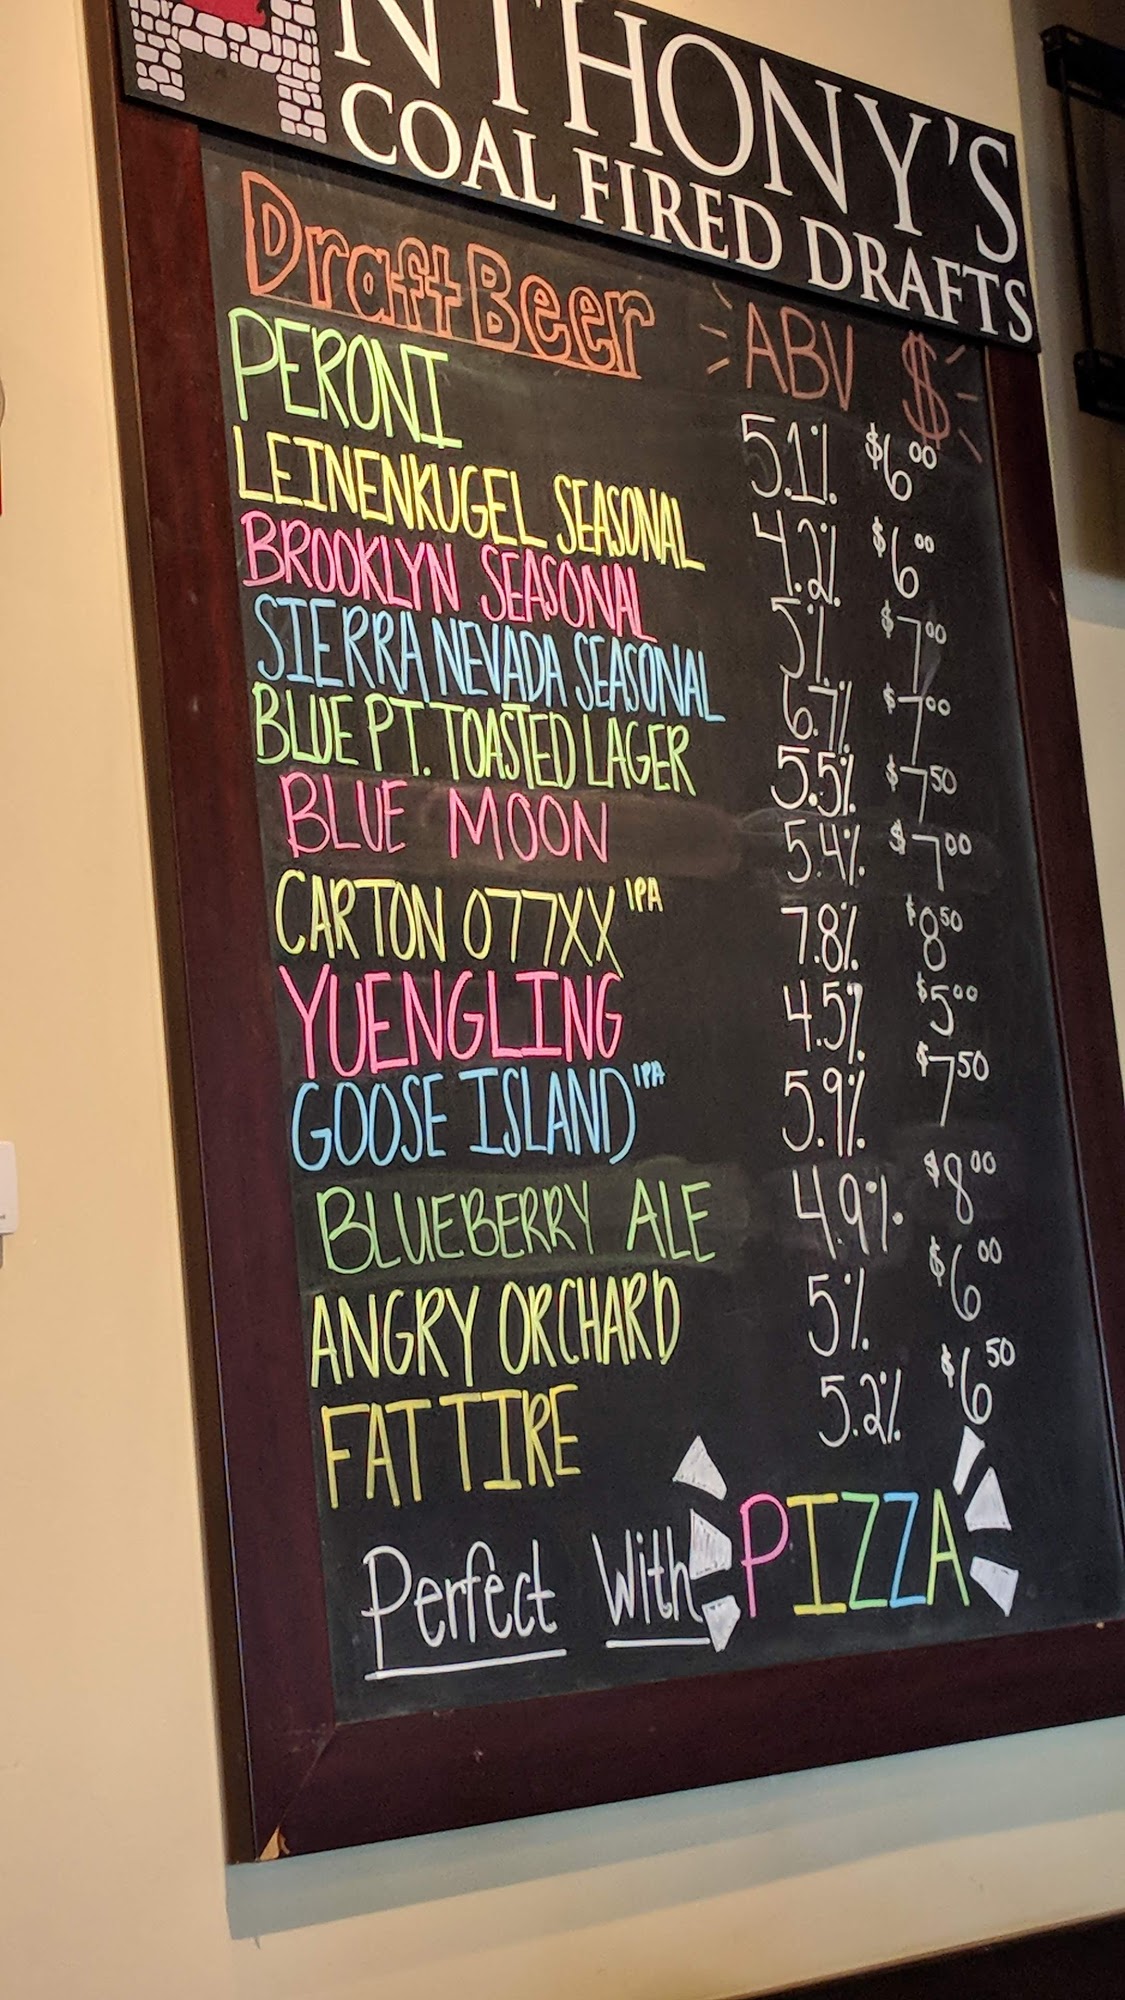 NTHONY'S
COAL FIRED DRAFTS
Draft Beer ABV $
PERONI 5.1% $6.00
LEINENKUGEL SEASONAL 4.2% $6.00
BROOKLYN SEASONAL 5% $7.00
SIERRA NEVADA SEASONAL 6.7% $7.00
BLUE PT. TOASTED LAGER 5.5% $7.50
BLUE MOON 5.4% $7.00
CARTON 077XX IPA 7.8% $8.50
YUENGLING 4.5% $5.00
GOOSE ISLAND IPA 5.9% $7.50
BLUEBERRY ALE 4.9% $8.00
ANGRY ORCHARD 5% $6.00
FAT TIRE 5.2% $6.50
Perfect With PIZZA